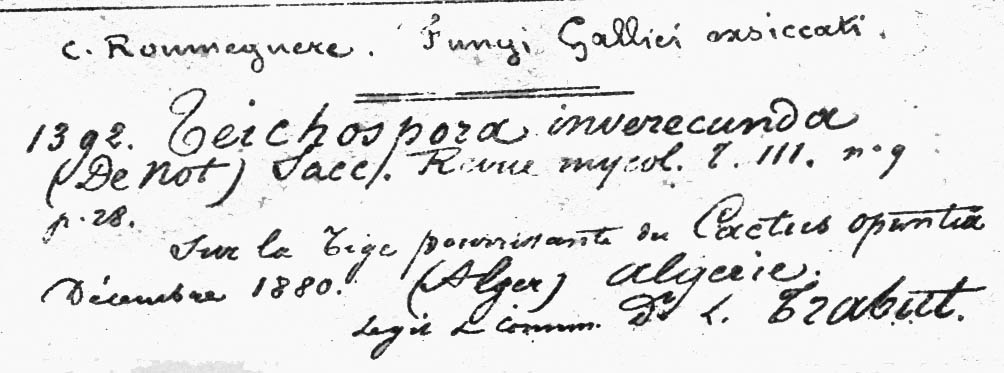 C. Roumeguere. Fungi Gallici exsiccati.
1392. Teichospora inverecunda
(De Not) Sacc. Revue mycol. T. III. n. 9
p. 28.
Sur la tige pourrissante du Cactus opuntia
(Alger) Algerie.
Décembre 1880.
Legit & comm. Dr. L. Trabut.